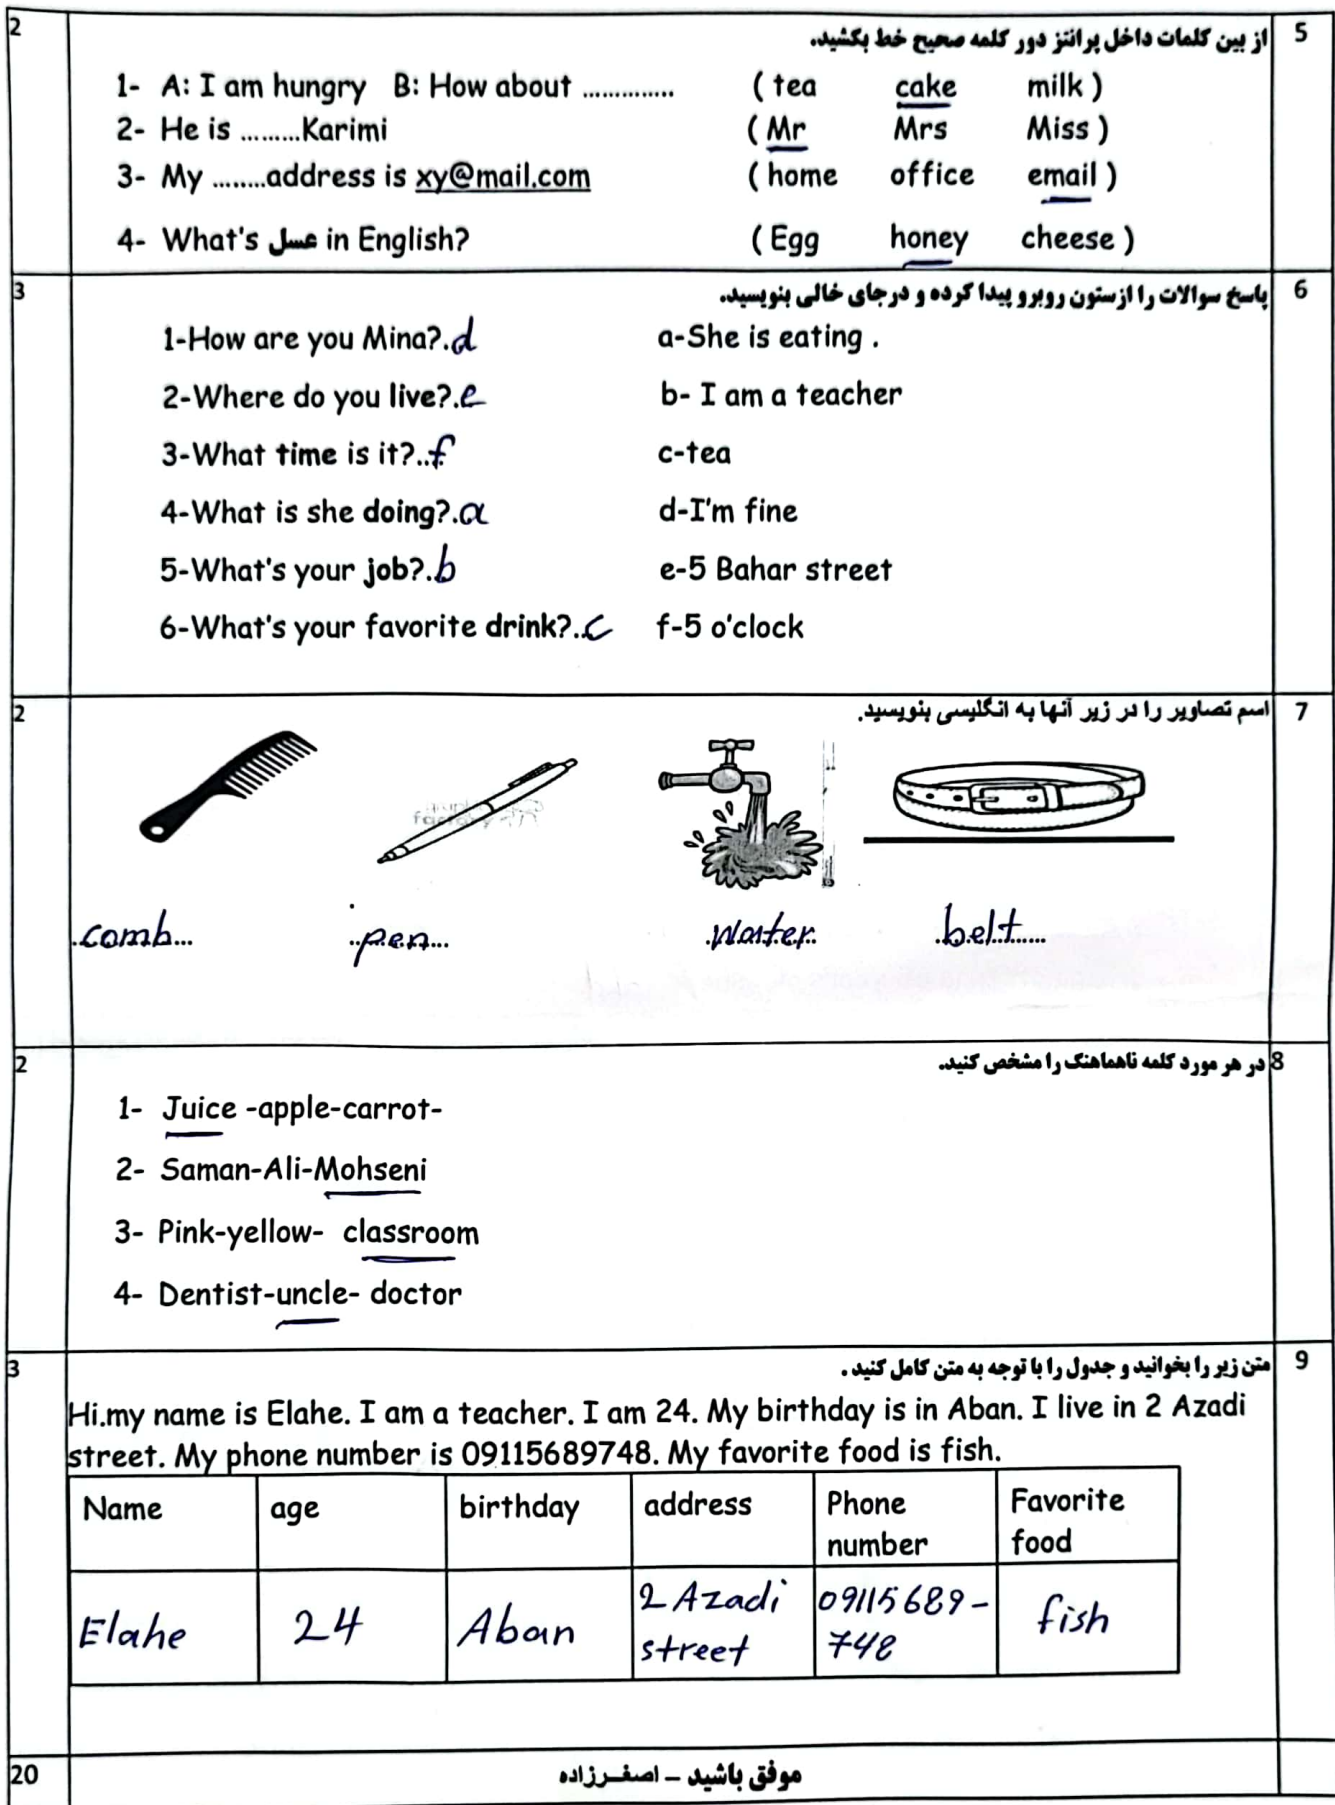 2 از بین کلمات داخل پرانتز دور کلمه صحیح خط بکشید. 5
1- A: I am hungry B: How about .............. ( tea cake milk )
2- He is .........Karimi ( Mr Mrs Miss )
3- My ........address is xy@mail.com ( home office email )
4- What's عسل in English? ( Egg honey cheese )
3 پاسخ سوالات را ازستون روبرو پیدا کرده و درجای خالی بنویسید. 6
1-How are you Mina?.d a-She is eating .
2-Where do you live?.e b- I am a teacher
3-What time is it?..f c-tea
4-What is she doing?.a d-I'm fine
5-What's your job?.b e-5 Bahar street
6-What's your favorite drink?..c f-5 o'clock
2 اسم تصاویر را در زیر آنها به انگلیسی بنویسید. 7
.comb... ..pen... .water. .belt......
2 در هر مورد کلمه ناهماهنگ را مشخص کنید. 8
1- Juice -apple-carrot-
2- Saman-Ali-Mohseni
3- Pink-yellow- classroom
4- Dentist-uncle- doctor
3 متن زیر را بخوانید و جدول را با توجه به متن کامل کنید . 9
Hi.my name is Elahe. I am a teacher. I am 24. My birthday is in Aban. I live in 2 Azadi
street. My phone number is 09115689748. My favorite food is fish.
Name age birthday address Phone number Favorite food
Elahe 24 Aban 2 Azadi street 09115689-748 fish
20 موفق باشید – اصغرزاده